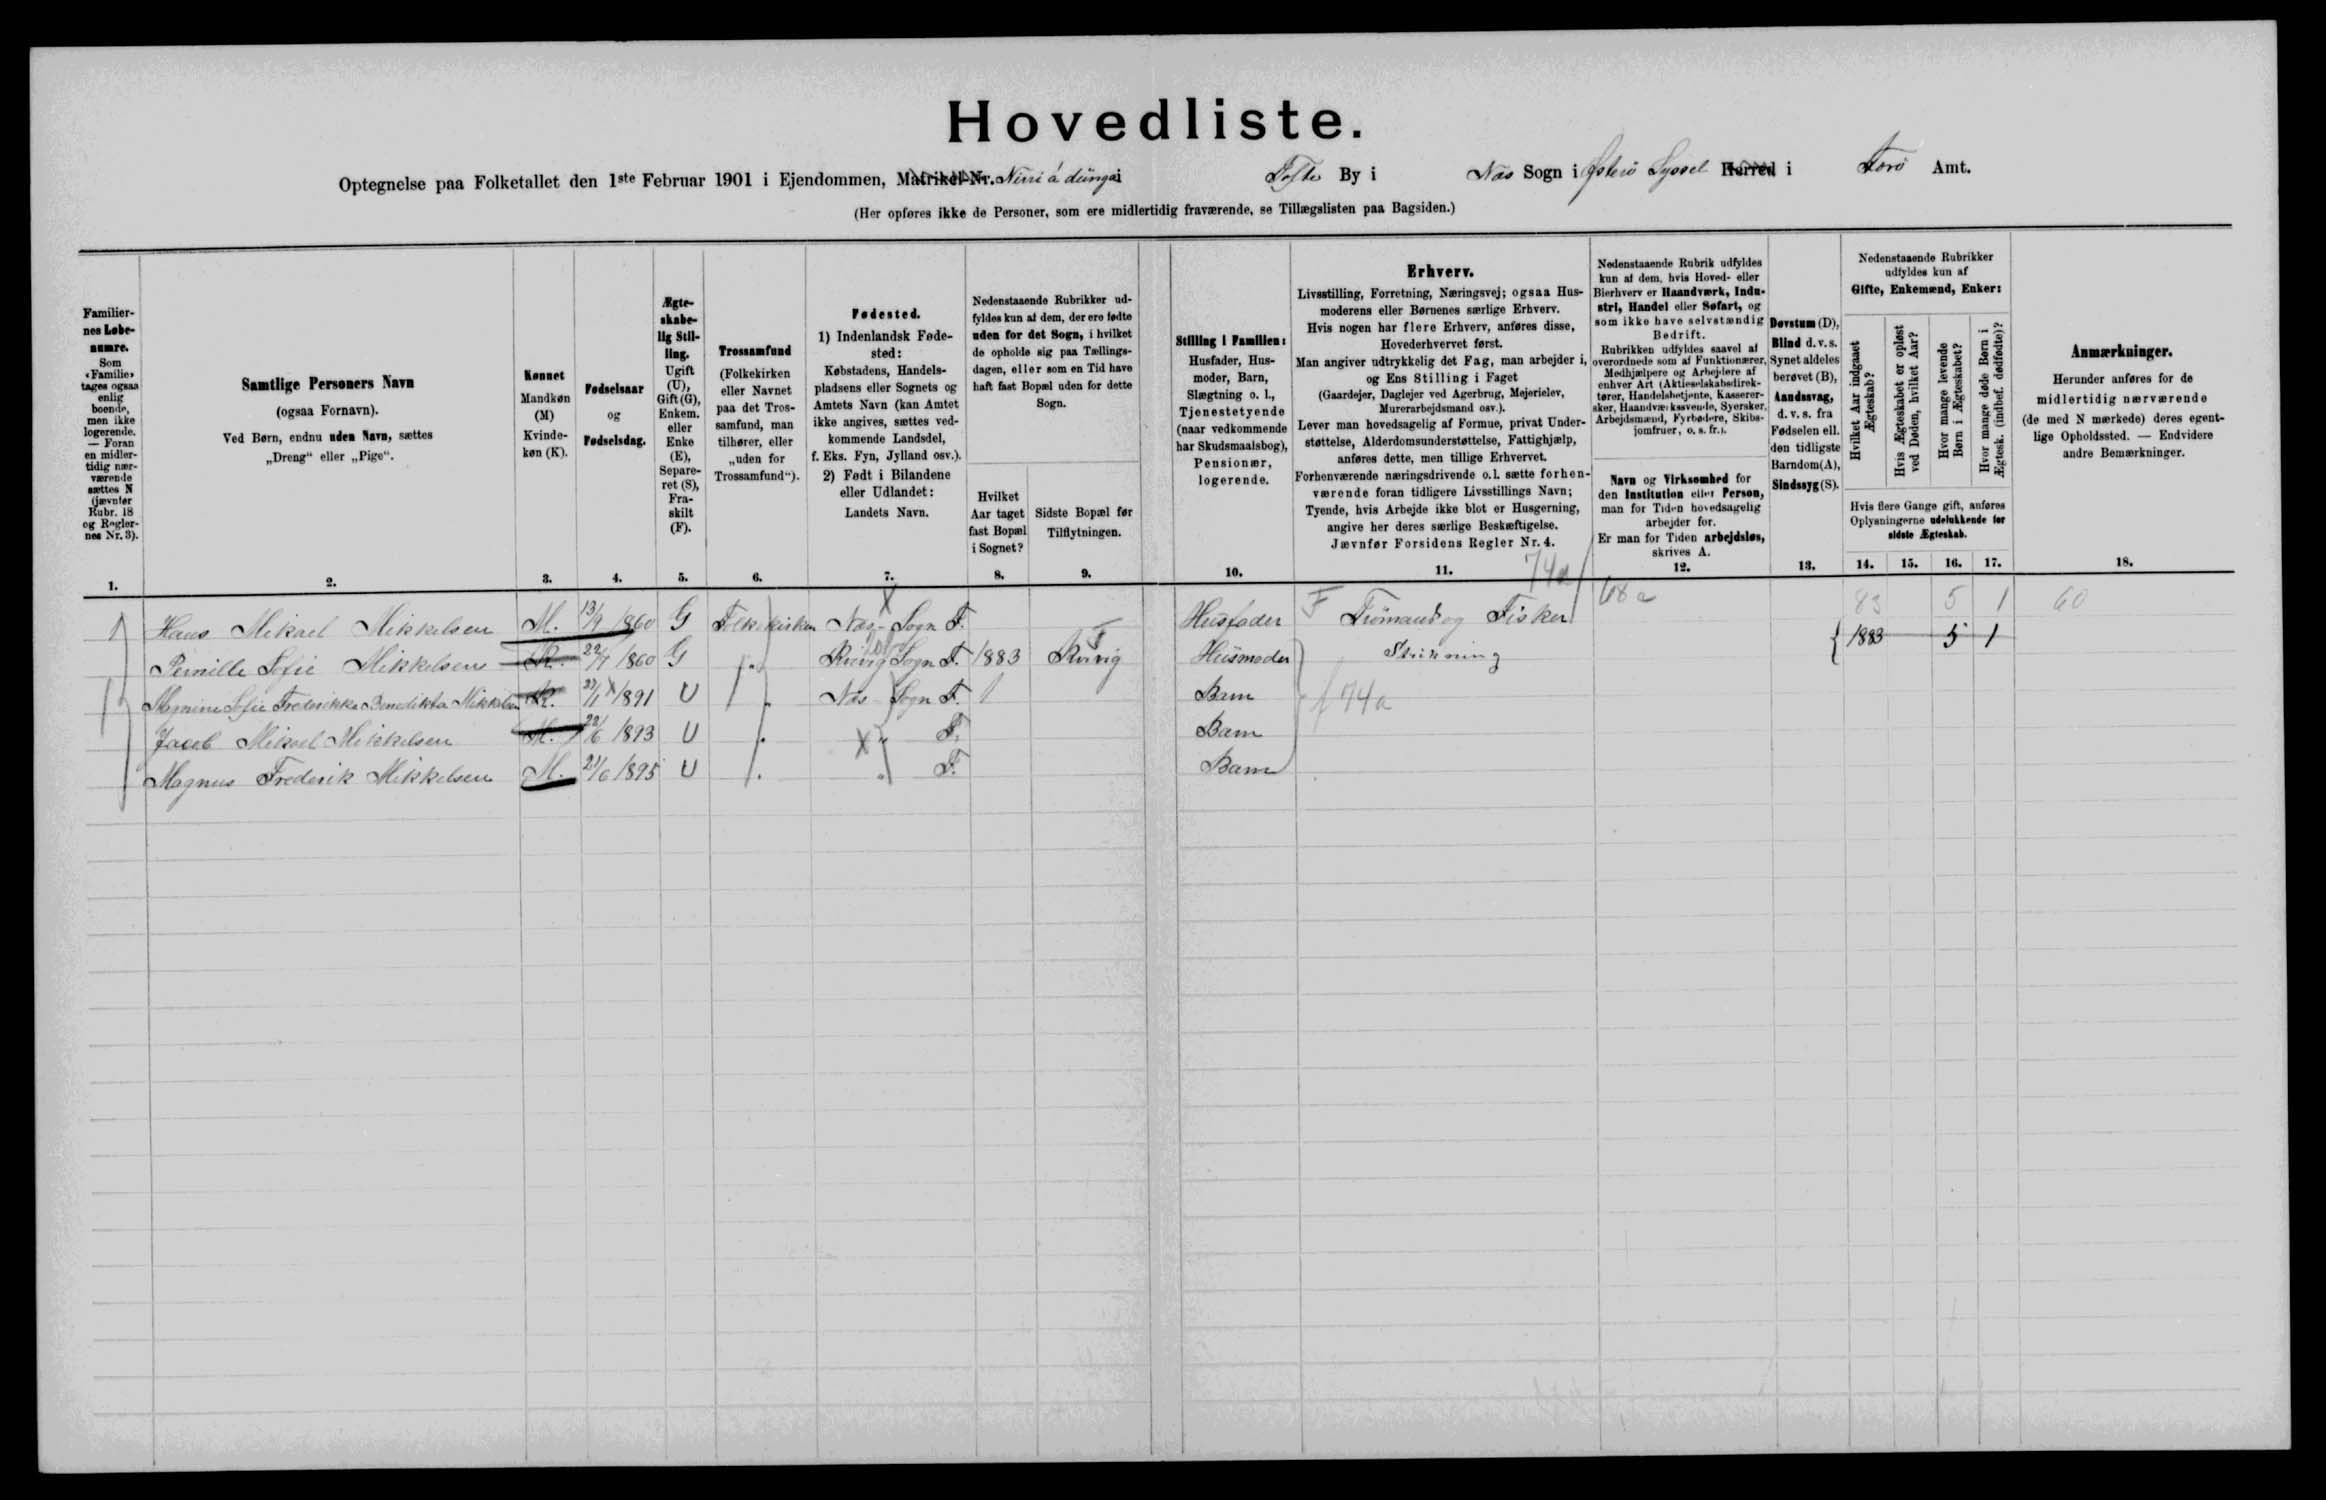 Hovedliste.
Optegnelse paa Folketallet den 1ste Februar 1901 i Ejendommen, Matrikel-Nr. Nirri á dünga i Tofte By i Næs Sogn i Østerø Syssel Herred i Færø Amt.
(Her opføres ikke de Personer, som ere midlertidig fraværende, se Tillægslisten paa Bagsiden.)
Familier-
nes Løbe-
numre.
Som
«Familie»
tages ogsaa
enlig
boende,
men ikke
logerende.
— Foran
en midler-
tidig nær-
værende
sættes N
(jævnfør
Rubr. 18
og Regler-
nes Nr. 3).
1.
Samtlige Personers Navn
(ogsaa Fornavn).
Ved Børn, endnu uden Navn, sættes
„Dreng“ eller „Pige“.
2.
Kønnet
Mandkøn
(M)
Kvinde-
køn (K).
3.
Fødselsaar
og
Fødselsdag.
4.
Ægte-
skabe-
lig Stil-
ling.
Ugift
(U),
Gift (G),
Enkem.
eller
Enke
(E),
Separe-
ret (S),
Fra-
skilt
(F).
5.
Trossamfund
(Folkekirken
eller Navnet
paa det Tros-
samfund, man
tilhører, eller
„uden for
Trossamfund“).
6.
Fødested.
1) Indenlandsk Føde-
sted:
Købstadens, Handels-
pladsens eller Sognets og
Amtets Navn (kan Amtet
ikke angives, sættes ved-
kommende Landsdel,
f. Eks. Fyn, Jylland osv.).
2) Født i Bilandene
eller Udlandet:
Landets Navn.
7.
Nedenstaaende Rubrikker ud-
fyldes kun af dem, der ere fødte
uden for det Sogn, i hvilket
de opholde sig paa Tællings-
dagen, eller som en Tid have
haft fast Bopæl uden for dette
Sogn.
Hvilket
Aar taget
fast Bopæl
i Sognet?
8.
Sidste Bopæl før
Tilflytningen.
9.
Stilling i Familien:
Husfader, Hus-
moder, Barn,
Slægtning o. l.,
Tjenestetyende
(naar vedkommende
har Skudsmaalsbog),
Pensionær,
logerende.
10.
Erhverv.
Livsstilling, Forretning, Næringsvej; ogsaa Hus-
moderens eller Børnenes særlige Erhverv.
Hvis nogen har flere Erhverv, anføres disse,
Hovederhvervet først.
Man angiver udtrykkelig det Fag, man arbejder i,
og Ens Stilling i Faget
(Gaardejer, Daglejer ved Agerbrug, Mejerielev,
Murerarbejdsmand osv.).
Lever man hovedsagelig af Formue, privat Under-
støttelse, Alderdomsunderstøttelse, Fattighjælp,
anføres dette, men tillige Erhvervet.
Forhenværende næringsdrivende o. l. sætte forhen-
værende foran tidligere Livsstillings Navn;
Tyende, hvis Arbejde ikke blot er Husgerning,
angive her deres særlige Beskæftigelse.
Jævnfør Forsidens Regler Nr. 4.
11.
Nedenstaaende Rubrik udfyldes
kun af dem, hvis Hoved- eller
Bierhverv er Haandværk, Indu-
stri, Handel eller Søfart, og
som ikke have selvstændig
Bedrift.
Rubrikken udfyldes saavel af
overordnede som af Funktionærer,
Medhjælpere og Arbejdere af
enhver Art (Aktieselskabsdirek-
tører, Handelsbetjente, Kasserer-
sker, Haandværkssvende, Syersker,
Arbejdsmænd, Fyrbødere, Skibs-
jomfruer, o. s. fr.).
Navn og Virksomhed for
den Institution eller Person,
man for Tiden hovedsagelig
arbejder for.
Er man for Tiden arbejdsløs,
skrives A.
12.
Døvstum (D),
Blind d. v. s.
Synet aldeles
berøvet (B),
Aandssvag,
d. v. s. fra
Fødselen ell.
den tidligste
Barndom (A),
Sindssyg (S).
13.
Nedenstaaende Rubrikker
udfyldes kun af
Gifte, Enkemænd, Enker:
Hvilket Aar indgaaet
Ægteskab?
Hvis Ægteskabet er opløst
ved Døden, hvilket Aar?
Hvor mange levende
Børn i Ægteskabet?
Hvor mange døde Børn i
Ægtesk. (indbef. dødfødte)?
Hvis flere Gange gift, anføres
Oplysningerne udelukkende for
sidste Ægteskab.
14. 15. 16. 17.
Anmærkninger.
Herunder anføres for de
midlertidig nærværende
(de med N mærkede) deres egent-
lige Opholdssted. — Endvidere
andre Bemærkninger.
18.
74a 68a
1 Hans Mikael Mikkelsen M. 13/9 1860 G Folkekirken Næs- Sogn F. Husfader F Trømand og Fisker 83 5 1 60
Pernille Sofie Mikkelsen K. 22/7 1860 G " Kvivig Sogn F. 1883 Kvivig Husmoder Strikning 1883 5 1
Magnine Sofie Frederikke Benedikta Mikkelsen K. 27/1 1891 U " Næs- Sogn F. Barn 74a
Jacob Mikael Mikkelsen M. 28/6 1893 U " " F. Barn
Magnus Frederik Mikkelsen M. 21/6 1895 U " " F. Barn